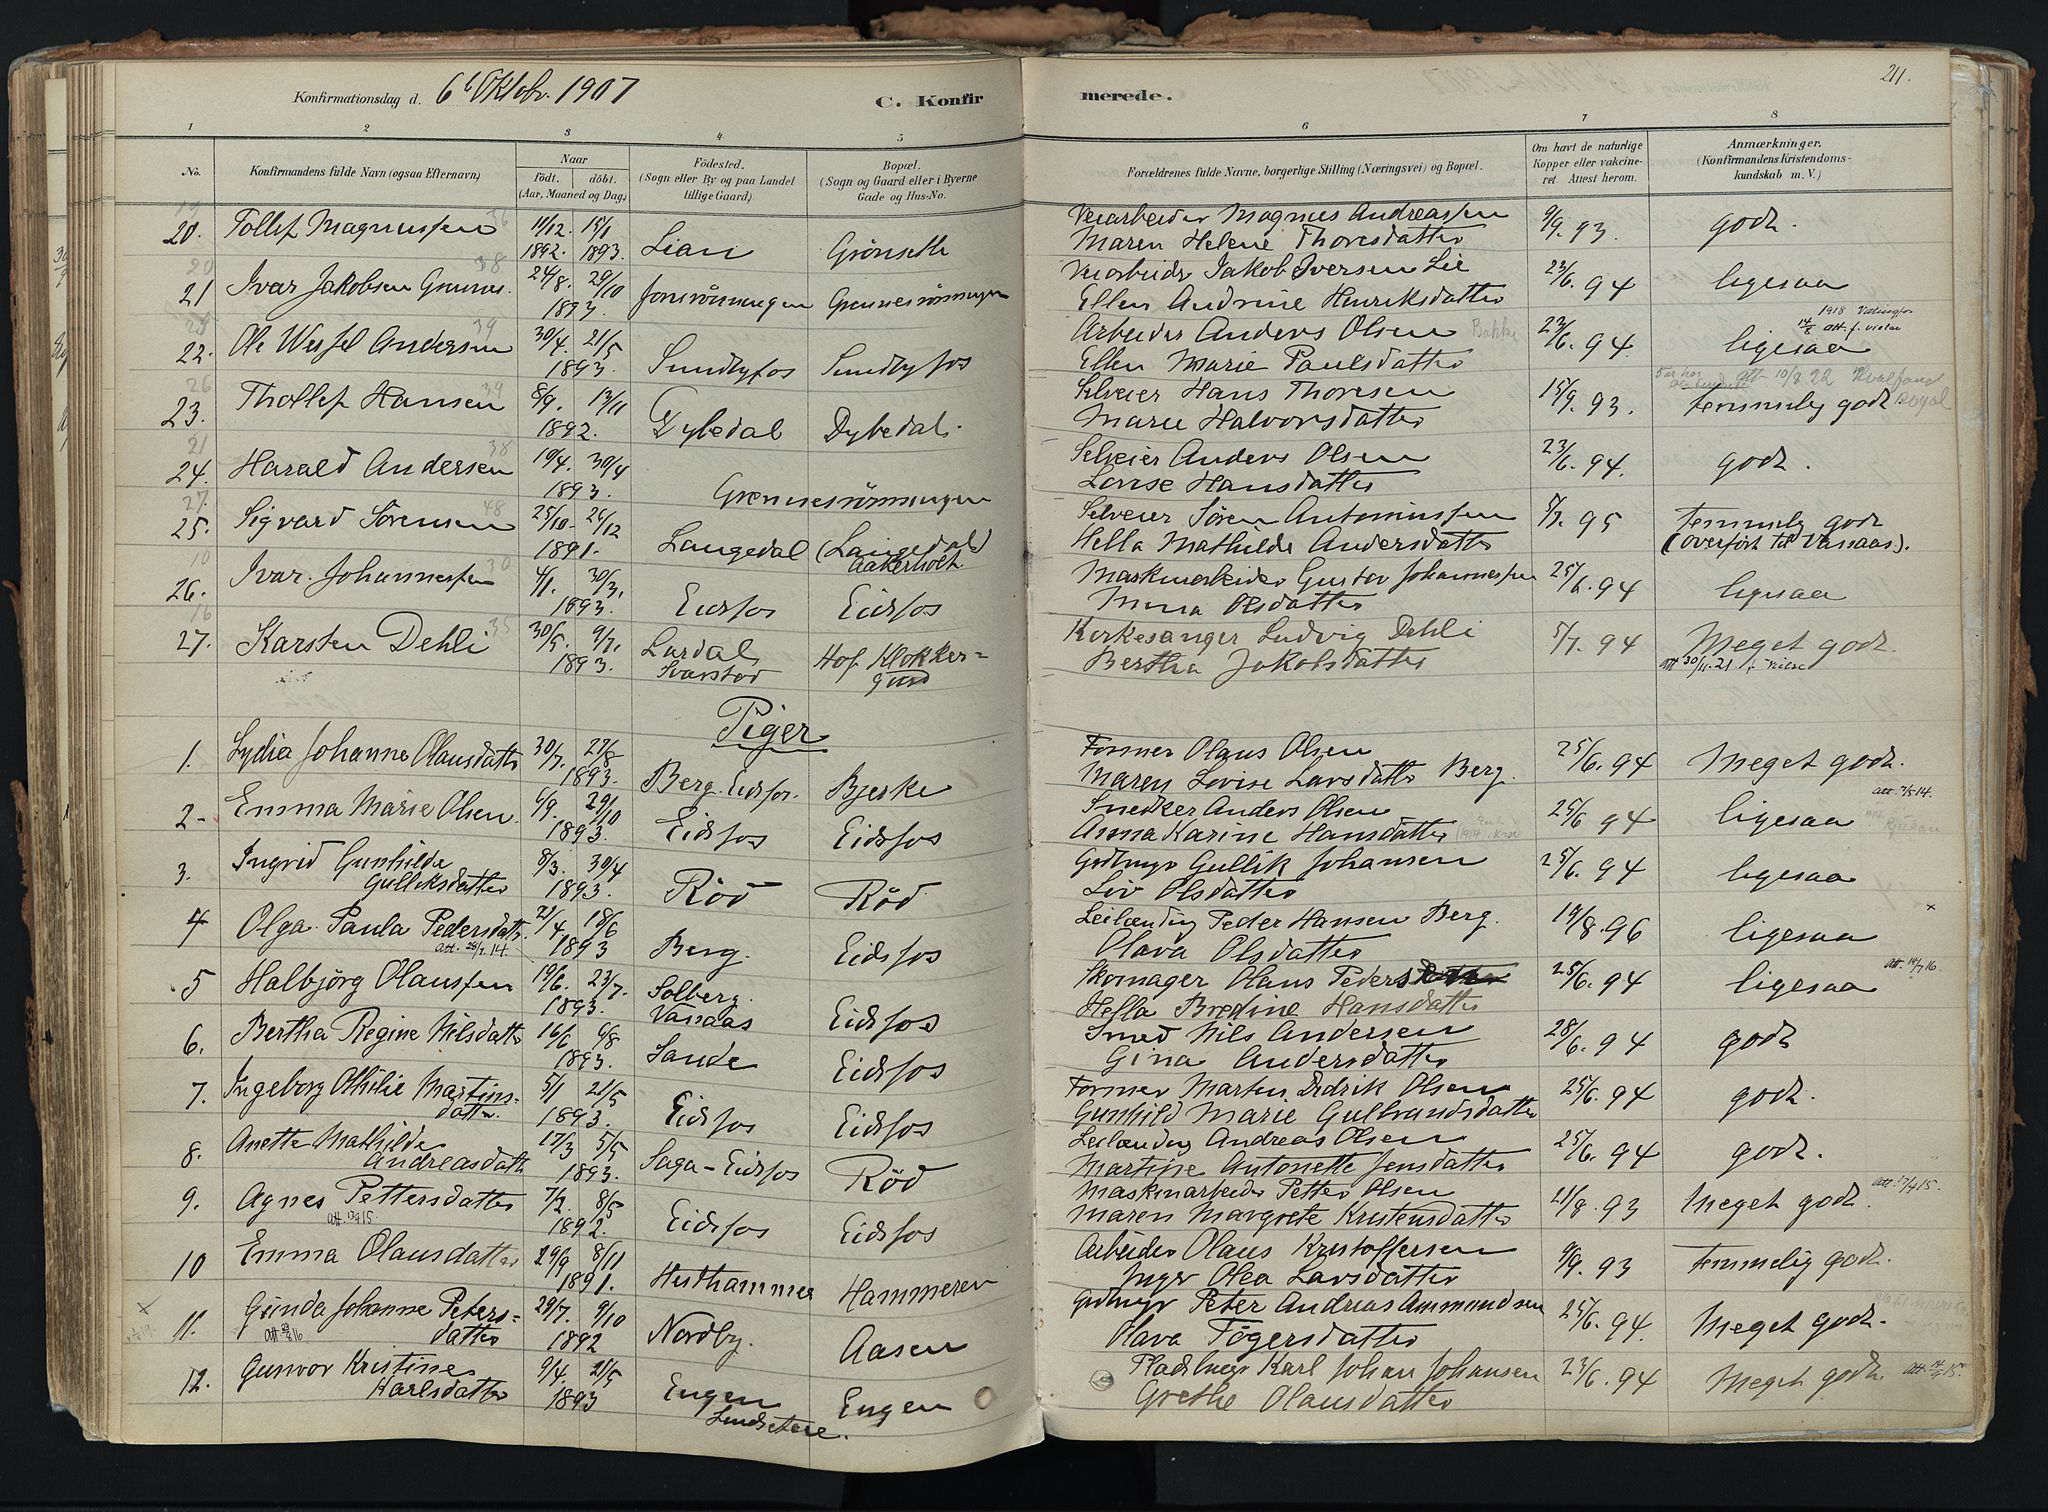 211.
Konfirmationsdag d. 6t Oktobr. 1907 C. Konfir merede.
1 2 3 4 5 6 7 8
No. Konfirmandens fulde Navn (ogsaa Efternavn) Naar Födt. döbt. (Aar, Maaned og Dag) Födested. (Sogn eller By og paa Landet tillige Gaard) Bopæl. (Sogn og Gaard eller i Byerne Gade og Hus-No. Forældrenes fulde Navne, borgerlige Stilling (Næringsvei) og Bopæl. Om havt de naturlige Kopper eller vakcineret. Attest herom. Anmærkninger. (Konfirmandens Kristendomskundskab m. V.)
19 36
20. Tollef Magnussen 11/12. 15/1 1892. 1893. Lian Grønsett Veiarbeider Magnus Andreassen 9/9. 93. godt.
Maren Helene Thoresdatter
20 38
21 Ivar Jakobsen Grennes. 24/8. 29/10 1893. Grennesrönningen Veiarbeider Jakob Iversen Lie 23/6. 94 ligesaa
Ellen Andrine Henriksdatter
25 39
22. Ole Wessel Andersen 30/4. 21/5 1893. Sundbyfos Sundbyfos Arbeider Anders Olsen Bakke 23/6. 94. ligesaa
Ellen Marie Paulsdatter
26 39
23. Thollef Hansen 8/9. 13/11 1892. Dybedal Dybedal. Selveier Hans Thoresen 15/9. 93. temmelig godt
Att 10/8.22 Hvalfangst
Marie Halvorsdatter
21 38
24. Harald Andersen 19/4. 30/4 1893. Grennesrönningen Selveier Anders Olsen 23/6. 94. godt.
Lovise Hansdatter
27. 48
25. Sigvard Sörensen 25/10. 26/12 1891. Langedal (Langedal) Aakerholt Selveier Sören Antonussen 5/7. 95 temmelig godt
Hella Mathilde Andersdatter (Overført til Vassaas).
10 30
26. Ivar Johannessen 4/1. 30/3. 1893. Eidsfos Eidsfos Maskinarbeider Gustav Johannessen 25/6. 94 ligesaa
Olsdatter
16 35
27. Karsten Dehli 30/5. 9/7. 1893. Lardal Svarstad Hof Klokkergaard Kirkesanger Ludvig Dehli 5/7. 94 Meget godt.
Bertha Jakobsdatter Att 30/11.21 f. vielse
Piger
1. Lydia Johanne Olausdatter 30/7. 27/8 1893. Berg. Eidsfos. Bjerke Former Olaus Olsen 25/6. 94 Meget godt.
Maren Lovise Larsdatter Berg.
Att. 7/5 14.
2- Emma Marie Olsen 6/9. 29/10 1893. Eidsfos Eidsfos Snedker Anders Olsen 25/6 94 ligesaa
Anna Karine Hansdatter
3. Ingrid Gunhilda Gulliksdatter 8/3. 30/4 1893. Röd Röd. Gullik Johansen 25/6. 94 ligesaa
Liv Olsdatter
4 Olga Paula Pedersdatter 21/4. 18/6 1893 Berg. Eidsfos Leilænding Peder Hansen Berg. 19/8. 96 ligesaa
Olava Olsdatter
5 Halbjörg Olaussen 19/6. 23/7. 1893. Solberg. Vassaas Eidsfos Skomager Olaus Peders 25/6. 94 ligesaa
Hella Bredine Hansdatter
6. Bertha Regine Nilsdatter 16/6 6/8 1893. Sande Eidsfos Smed Nils Andersen 28/6. 94 godt
Gina Andersdatter
7. Ingeborg Othilie Martinsdatter. 5/1 21/5 1893. Eidsfos Eidsfos Former Martin Didrik Olsen 25/6. 94 godt.
Gunhild Marie Gulbrandsdatter
8. Anette Mathilde Andreasdatt. 17/3 5/5 1893. Saga-Eidsfos Röd Leilænding Andreas Olsen 25/6. 94 godt.
Martine Antonette Jensdatter
9. Agnes Pettersdatter 7/2. 8/5 1892. Eidsfos Eidsfos Maskinarbeider Petter Olsen 21/8. 93 Meget godt.
Maren Margrete Kristensdatter
10 Emma Olausdatter 29/9 8/11 1891. Hesthammer Hammeren Arbeider Olaus Kristoffersen 9/9. 93 temmelig godt.
Inger Olea Larsdatter
11. Gunda Johanne Petersdatter 29/7. 9/10 1892 Nordby. Aasen Peter Andreas Ammundsen 25/6. 94. Meget godt.
Olava Tögersdatter
12. Gunvor Kristine Karlsdatter 9/4. 21/5 1893 Engen Engen Pladsbruger Karl Johan Johansen 23/6. 94 Meget godt.
Grethe Olausdatter